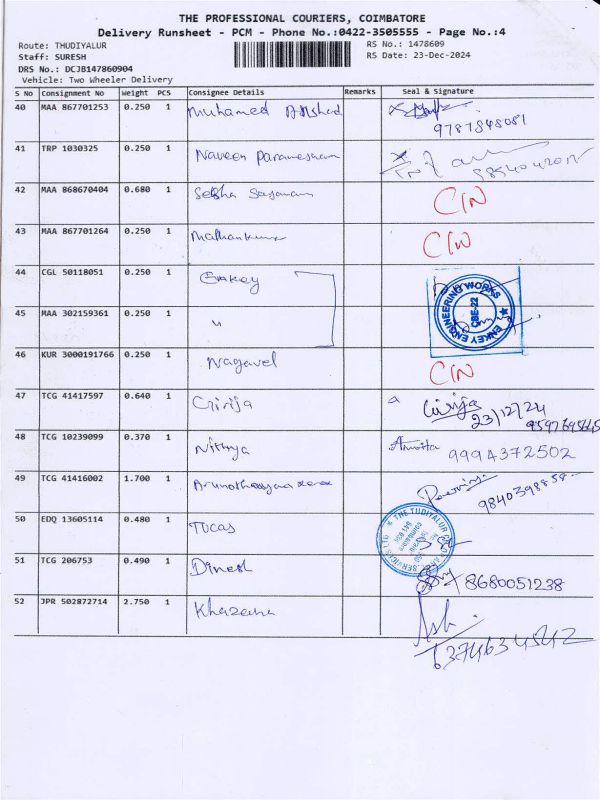 THE PROFESSIONAL COURIERS, COIMBATORE
Delivery Runsheet - PCM - Phone No.:0422-3505555 - Page No.:4
Route: THUDIYALUR
RS No.: 1478609
Staff: SURESH
RS Date: 23-Dec-2024
DRS No.: DCJB147860904
Vehicle: Two Wheeler Delivery
S No Consignment No Weight PCS Consignee Details Remarks Seal & Signature
40 MAA 867701253 0.250 1 Muhamed 9787848081
41 TRP 1030325 0.250 1 Naveen
42 MAA 868670404 0.680 1 CIN
43 MAA 867701264 0.250 1 CIN
44 CGL 50118051 0.250 1 Enkey
ENKEY ENGINEERING WORKS
CBE-22
45 MAA 302159361 0.250 1 "
46 KUR 3000191766 0.250 1 Nagavel CIN
47 TCG 41417597 0.640 1 Girija Girija
23/12/24
48 TCG 10239099 0.370 1 Nithya 9994372502
49 TCG 41416002 1.700 1
50 EDQ 13605114 0.480 1 TUCAS
51 TCG 206753 0.490 1 Dinesh 8680051238
52 JPR 502872714 2.750 1 Khazana
6374634542